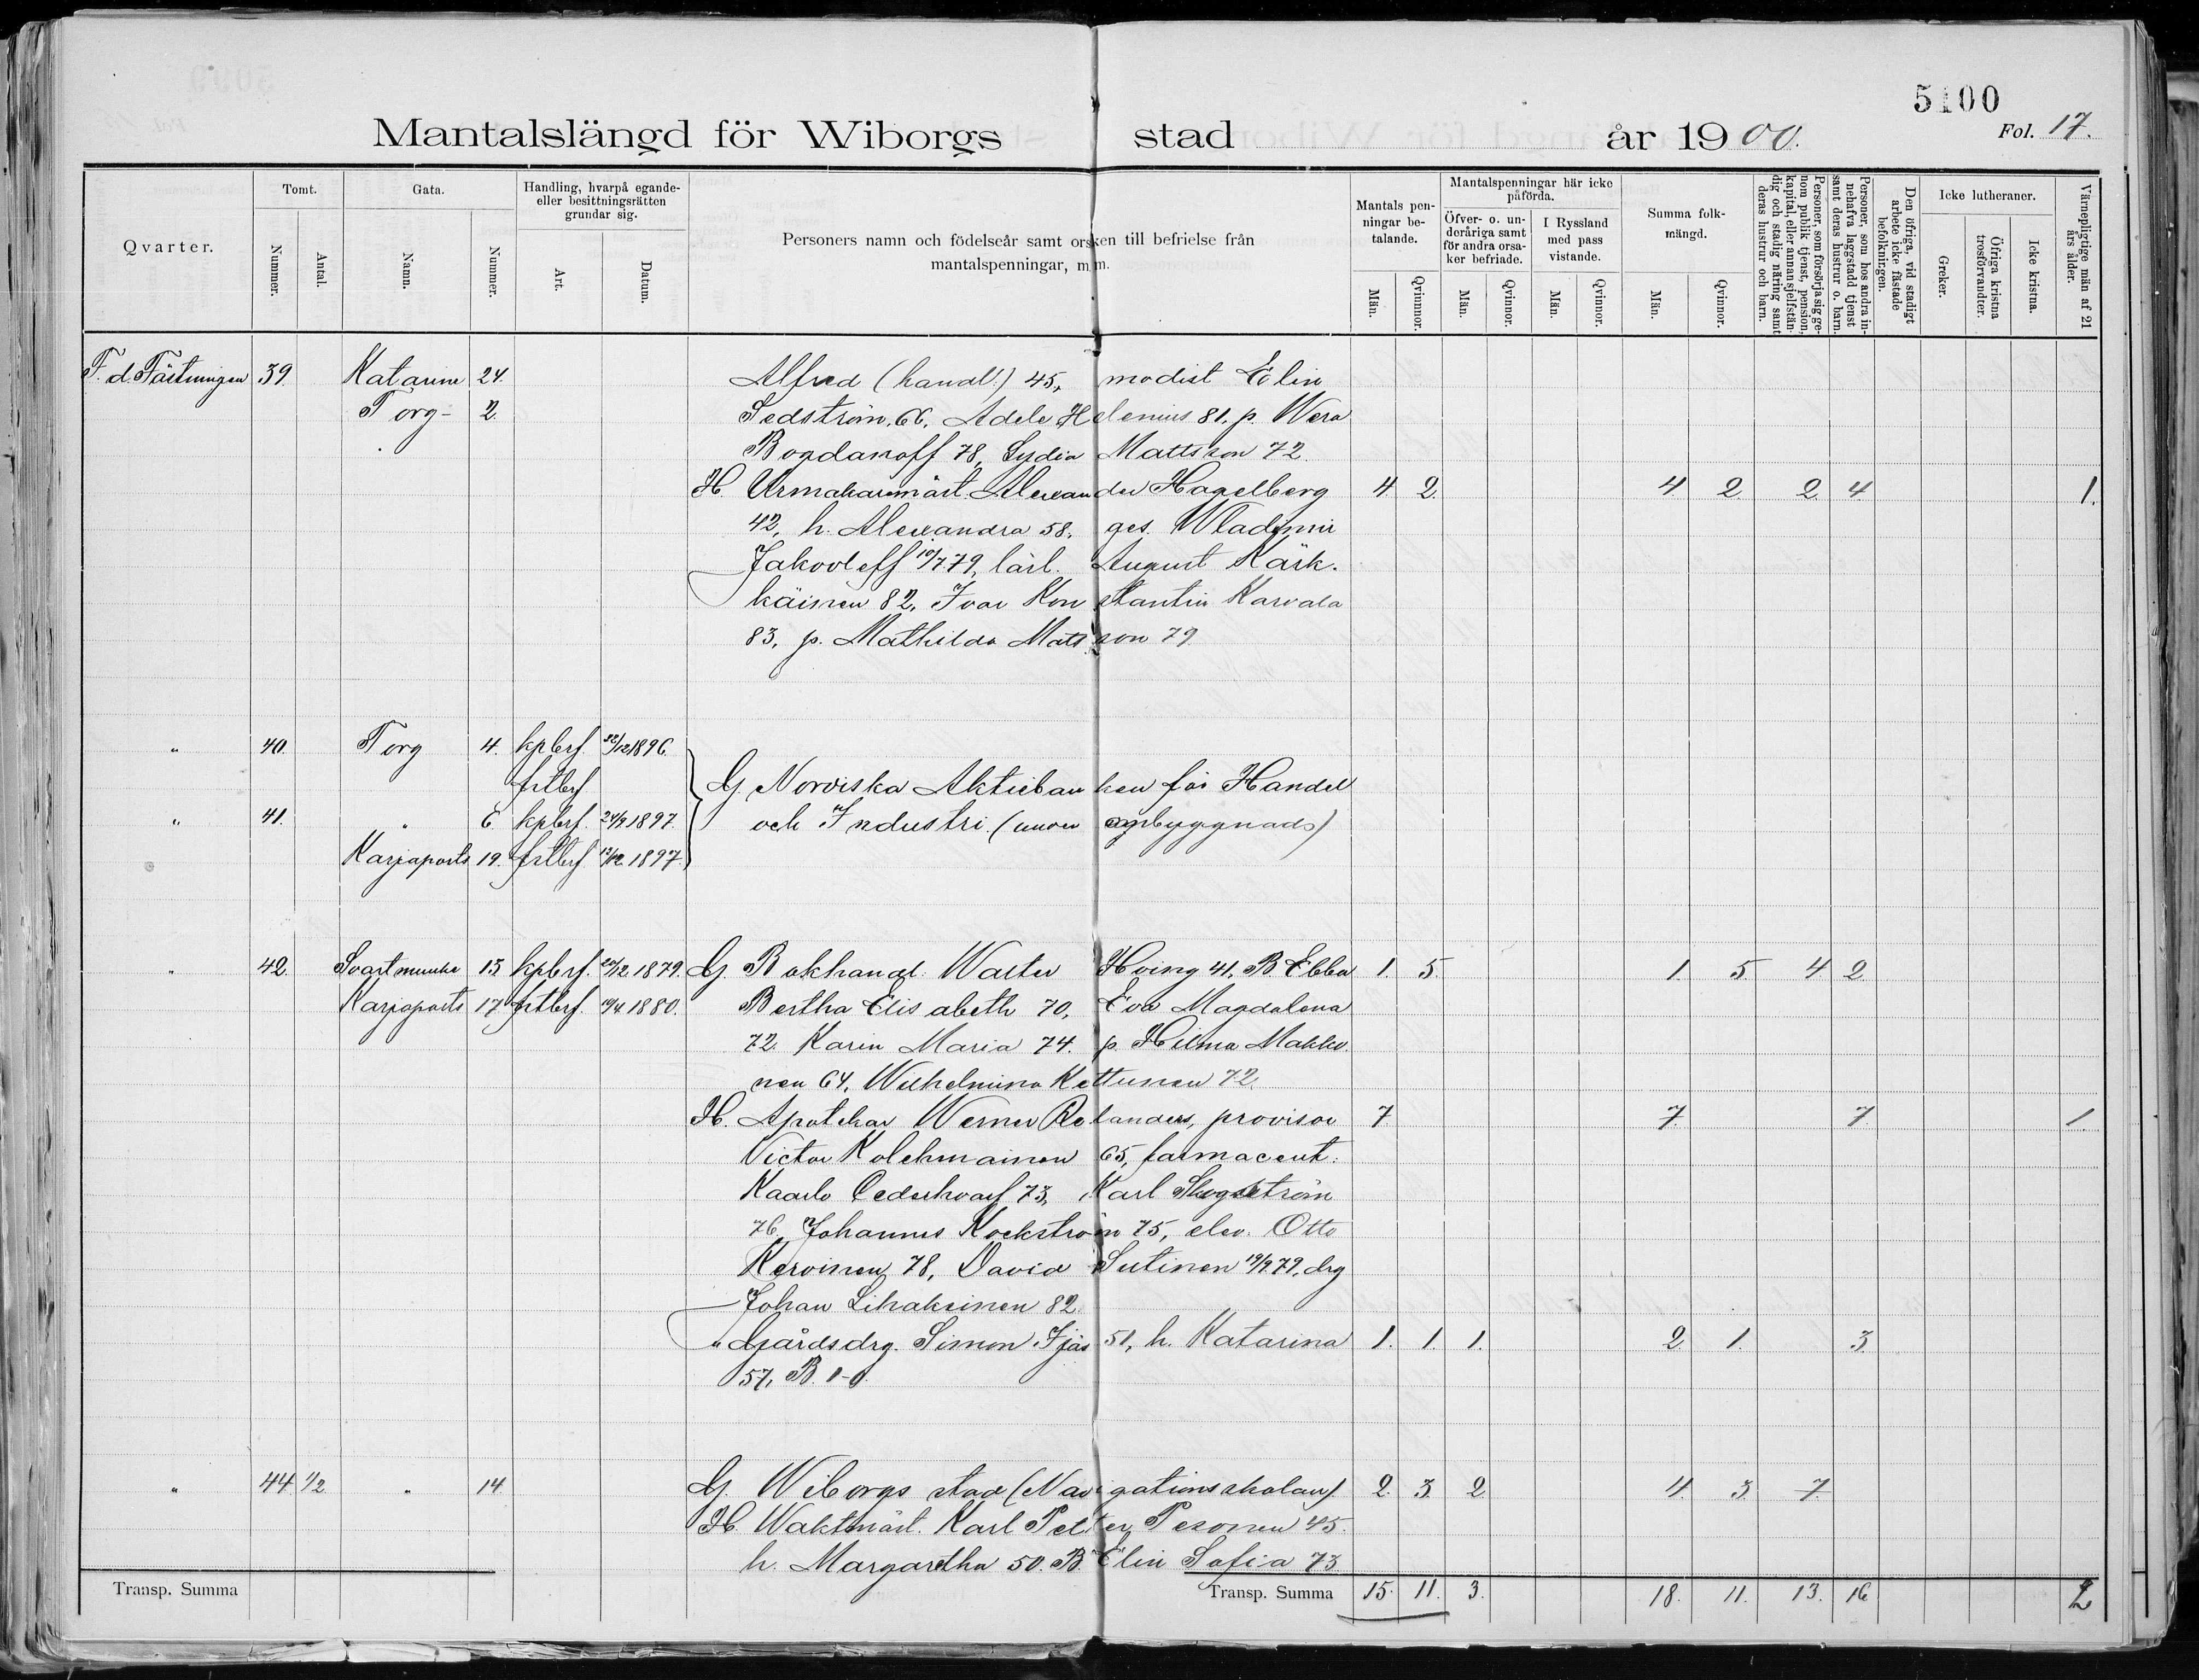 5100
Mantalslängd för Wiborgs stad år 1900. Fol. 17.
Qvarter.
Tomt.
Nummer.
Antal.
Gata.
Namn.
Nummer.
Handling, hvarpå egande-
eller besittningsrätten
grundar sig.
Art.
Datum.
Personers namn och födelseår samt orsken till befrielse från
mantalspenningar, m. m.
Mantals pen-
ningar be-
talande.
Män.
Qvinnor.
Mantalspenningar här icke
påförda.
Öfver- o. un-
deråriga samt
för andra orsa-
ker befriade.
Män.
Qvinnor.
I Ryssland
med pass
vistande.
Män.
Qvinnor.
Summa folk-
mängd.
Män.
Qvinnor.
Personer, som försörja sig ge-
nom publik tjenst, pension,
kapital, eller annan sjelfstän-
dig och stadig näring samt
deras hustrur och barn.
Personer, som hos andra in-
nehafva lagstadd tjenst
samt deras hustrur o. barn.
Den öfriga, vid stadigt
arbete icke fästade
befolkningen.
Icke lutheraner.
Greker.
Öfriga kristna
trosförvandter.
Icke kristna.
Värnepligtige män af 21
års ålder.
F. d. Fästningen 39. Katarine 24. Alfred (handl.) 45, modist Elin
Torg- 2. Sedström. 66. Adele Helenius 81. p. Wera
Bogdanoff 78, Lydia Mattsson 72.
H. Urmakaremäst. Alexander Hagelberg 4. 2. 4. 2. 2. 4. 1.
42, h. Alexandra 58. ges. Wladimir
Jakovleff 10/7 79, lärl. August Kärk-
käinen 82, Ivar Konstantin Karvala
83, p. Mathilda Mattsson 79
" 40. Torg 4. kpbrf. 1896.
fstbrf
G. Nordiska Aktiebanken för Handel
" 41. " 6. kpbrf. 24/9 1897. och Industri. (under ombyggnads)
Karjaports 19. fstbrf. 1897.
" 42. Svartmunke 15 kpbrf. 1879. G. Bokhandl. Walter Hoving 41. B. Ebba 1. 5. 1. 5. 4. 2.
Karjaports 17 fstbrf. 1880. Bertha Elisabeth 70, Eva Magdalena
72. Karin Maria 74. p. Hilma Makko-
nen 64. Wilhelmina Kettunen 72.
H. Apotekar Werner Relanders, provisor 7. 7. 7. 1.
Victor Kolehmainen 65, farmaceut.
Kaarlo Cederhvarf 73, Karl Skogström
76, Johannes Kockström 75, elev. Otto
Kervinen 78, David Sutinen 19/9 79, drg
Johan Lihaksinen 82.
" Gårdsdrg. Simon Ijäs 51, h. Katarina 1. 1. 1. 2. 1. 3.
57, B. 1-0.
" 44 1/2 " 14. G. Wiborgs stad (Navigationsskolan). 2. 3. 2. 4. 3. 7.
H. Waktmäst. Karl Petter Pesonen 45.
h. Margaretha 50. B. Elin Sofia 73
Transp. Summa Transp. Summa 15. 11. 3. 18. 11. 13. 16 2